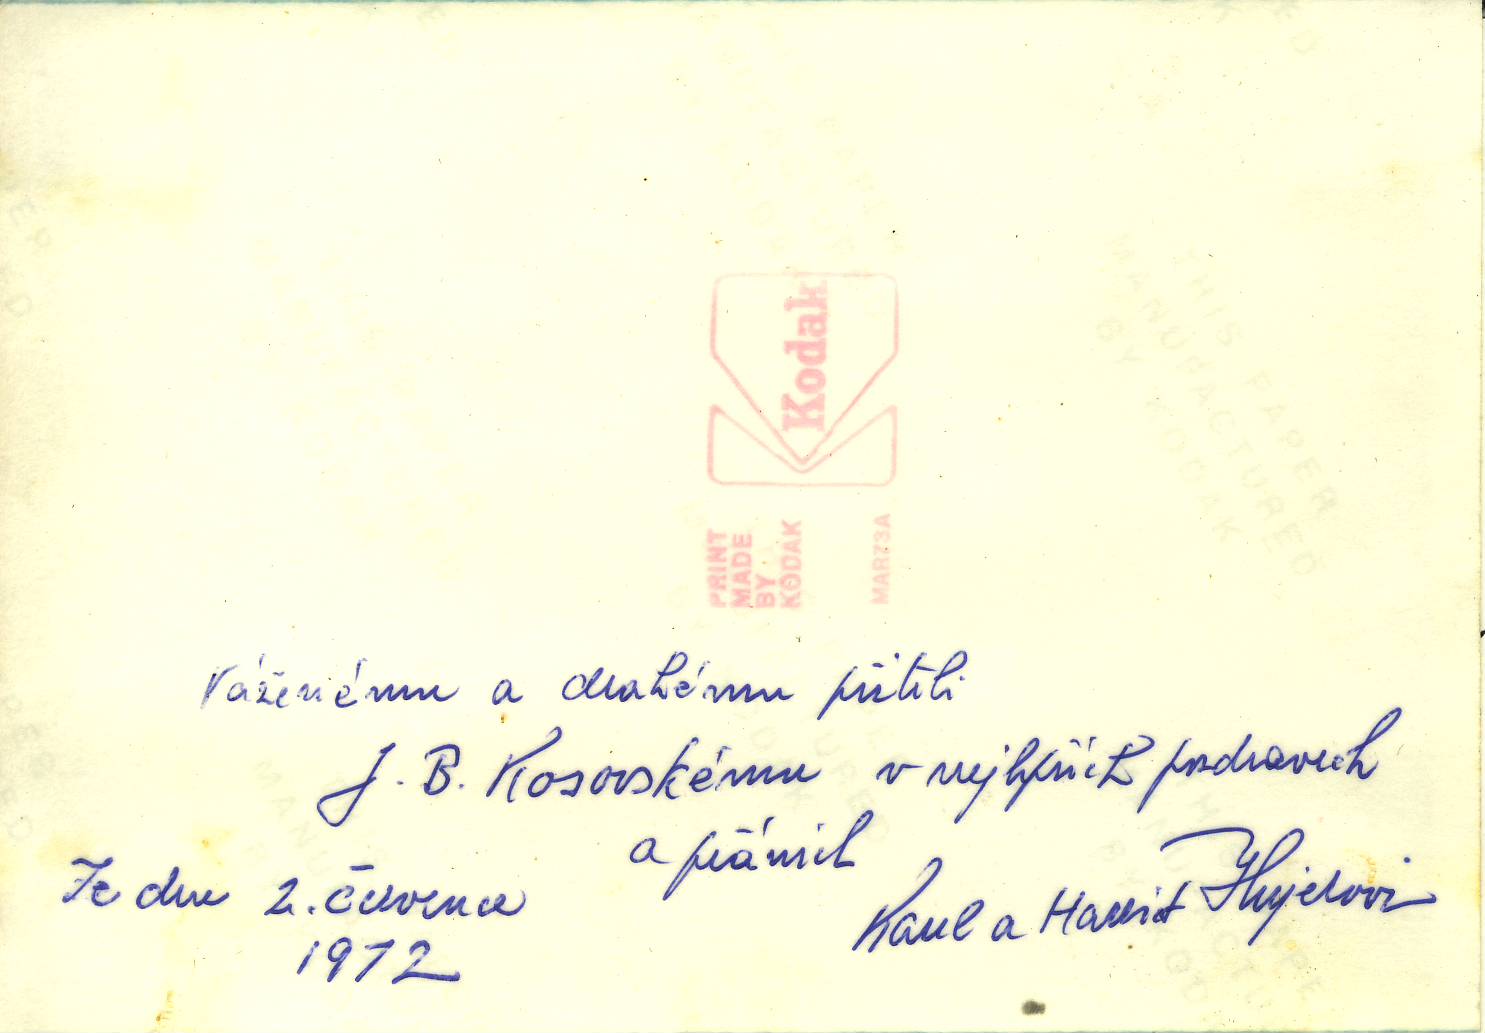 Kodak
PRINT
MADE
BY
KODAK
MAR73A
THIS PAPER
MANUFACTURED
BY KODAK
Váženému a drahému příteli
J. B. Kosovskému v nejlepších pozdravech
a přáních
Ze dne 2. července
1972
Karel a Harriet Hujerovi